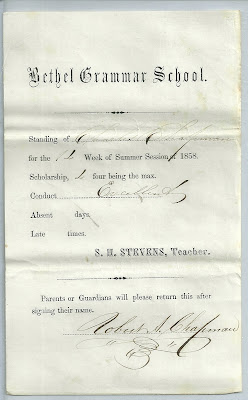 Bethel Grammar School.
Standing of Chapman
for the Week of Summer Session of 1858.
Scholarship, 4 four being the max.
Conduct Excellent
Absent days,
Late times.
S. H. STEVENS, Teacher.
Parents or Guardians will please return this after
signing their name.
Robert A. Chapman